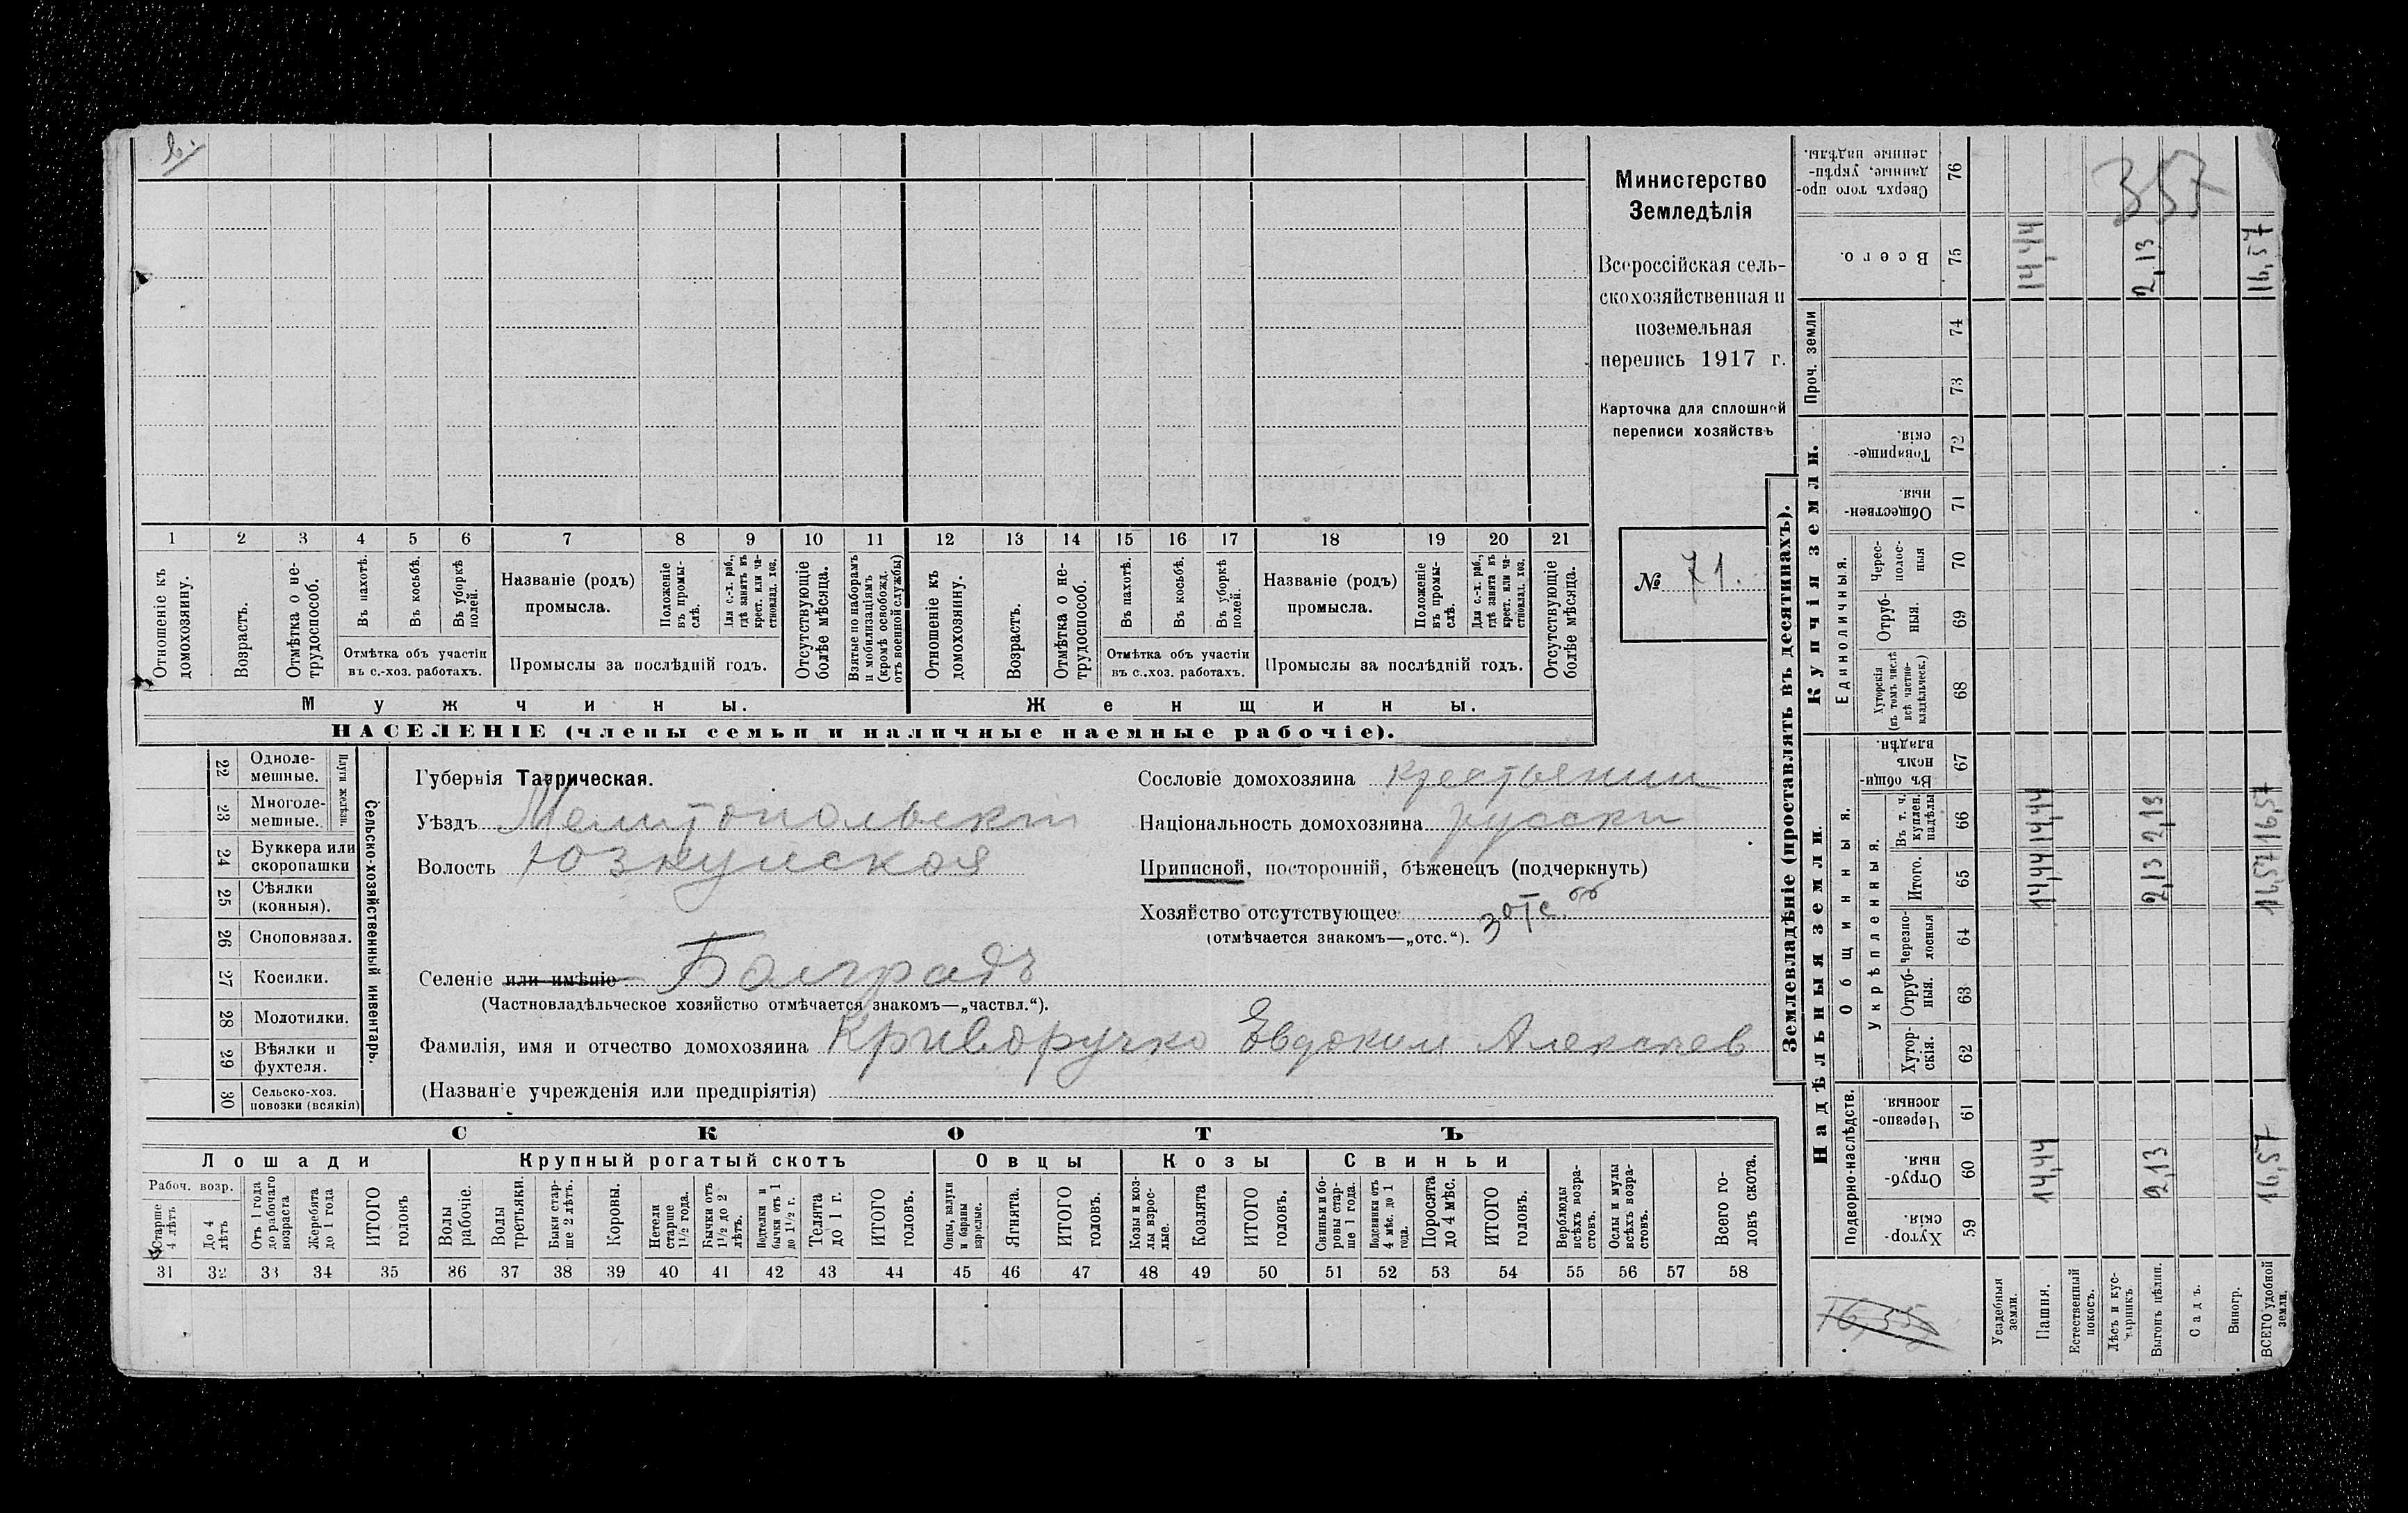 в.
Министерство
Земледѣлія
Всероссійская сель-
скохозяйственная и
поземельная
перепись 1917 г.
Карточка для сплошной
переписи хозяйствъ
№ 71.
1 2 3 4 5 6 7 8 9 10 11 12 13 14 15 16 17 18 19 20 21
Отношеніе къ домохозяину.
Возрастъ.
Отмѣтка о не-трудоспособ.
Въ пахотѣ.
Въ косьбѣ.
Въ уборкѣ полей.
Отмѣтка объ участіи
въ с.-хоз. работахъ.
Названіе (родъ)
промысла.
Положеніе въ промы-слѣ.
Для с.-х. раб., гдѣ занятъ въ крест. или ча-стновлад. хоз.
Промыслы за послѣдній годъ.
Отсутствующіе болѣе мѣсяца.
Взятые по наборамъ и мобилизаціямъ (кромѣ освобожд. отъ военной службы)
Отношеніе къ домохозяину.
Возрастъ.
Отмѣтка о не-трудоспособ.
Въ пахотѣ.
Въ косьбѣ.
Въ уборкѣ полей.
Отмѣтка объ участіи
въ с.-хоз. работахъ.
Названіе (родъ)
промысла.
Положеніе въ промы-слѣ.
Для с.-х. раб., гдѣ занята въ крест. или ча-стновлад. хоз.
Промыслы за послѣдній годъ.
Отсутствующіе болѣе мѣсяца.
Мужчины.
Женщины.
НАСЕЛЕНІЕ (члены семьи и наличные наемные рабочіе).
22 Одноле-мешные.
23 Многоле-мешные.
Плуги желѣзн.
24 Буккера или скоропашки
25 Сѣялки (конныя).
26 Сноповязал.
27 Косилки.
28 Молотилки.
29 Вѣялки и фухтеля.
30 Сельско-хоз. повозки (всякія)
Сельско-хозяйственный инвентарь.
Губернія Таврическая.
Уѣздъ Мелитопольскій
Волость Юзкуйская
Сословіе домохозяина крестьянин
Національность домохозяина русски
Приписной, посторонній, бѣженецъ (подчеркнуть)
Хозяйство отсутствующее отс.
(отмѣчается знакомъ—„отс.“).
Селеніе или имѣніе Болградъ
(Частновладѣльческое хозяйство отмѣчается знакомъ—„частвл.“).
Фамилія, имя и отчество домохозяина Криворучко Евдоким Алексеев
(Названіе учрежденія или предпріятія)
СКОТЪ
Лошади
Крупный рогатый скотъ
Овцы
Козы
Свиньи
Рабоч. возр.
Старше 4 лѣтъ
До 4 лѣтъ
Отъ 1 года до рабочаго возраста
Жеребята до 1 года
ИТОГО головъ
Волы рабочіе.
Волы третьяки.
Быки стар-ше 2 лѣтъ.
Коровы.
Нетели старше 1½ года.
Бычки отъ 1½ до 2 лѣтъ.
Подтелки и бычки отъ 1 до 1½ г.
Телята до 1 г.
ИТОГО головъ.
Овцы, валухи и бараны взрослые.
Ягнята.
ИТОГО головъ.
Козы и коз-лы взрос-лые.
Козлята
ИТОГО головъ.
Свиньи и бо-ровы стар-ше 1 года.
Подсвинки отъ 4 мѣс. до 1 года.
Поросята до 4 мѣс.
ИТОГО головъ.
Верблюды всѣхъ возра-стовъ.
Ослы и мулы всѣхъ возра-стовъ.
Всего го-ловъ скота.
31 32 33 34 35 36 37 38 39 40 41 42 43 44 45 46 47 48 49 50 51 52 53 54 55 56 57 58
Землевладѣніе (проставлять въ десятинахъ).
Надѣльныя земли.
Купчія земли.
Проч. земли
Подворно-наслѣдств.
Общинныя.
Укрѣпленныя.
Единоличныя.
Хутор-скія. 59
Отруб-ныя. 60
Черезпо-лосныя. 61
Хутор-скія. 62
Отруб-ныя. 63
Черезпо-лосныя 64
Итого. 65
Въ т. ч. куплен. надѣлы 66
Въ общин-номъ владѣн. 67
Хуторскія (въ томъ числѣ всѣ частно-владѣльческ.) 68
Отруб-ныя. 69
Черес-полос-ныя 70
Обществен-ныя. 71
Товарище-скія. 72
73
74
Всего. 75
Сверхъ того про-данные, укрѣп-ленные надѣлы. 76
Усадебныя земли.
Пашня. 14,44 14,44 14,44 14,44
Естественный покосъ.
Лѣсъ и кус-тарникъ
Выгонъ цѣлин. 2,13 2,13 2,13 2,13
Садъ.
Виногр.
ВСЕГО удобной земли. 16,57 16,57 16,57 16,57
357